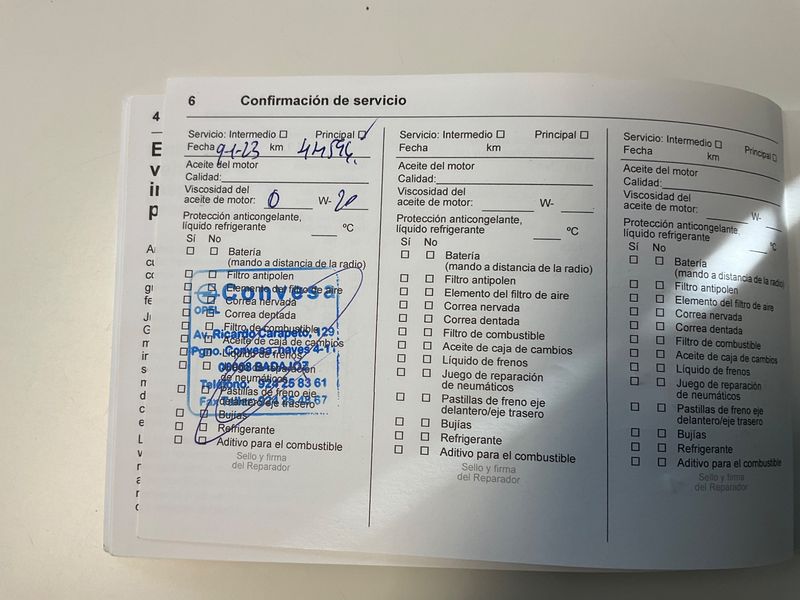 4
E
v
p
6 Confirmación de servicio
Servicio: Intermedio Principal
Fecha 9-1-23 km
Aceite del motor
Calidad:
Viscosidad del
aceite de motor: 0 W- 20
Protección anticongelante,
líquido refrigerante ºC
Sí No
Batería
(mando a distancia de la radio)
Filtro antipolen
Elemento del filtro de aire
Correa nervada
Correa dentada
Filtro de combustible
Aceite de caja de cambios
Líquido de frenos
Juego de reparación
de neumáticos
Pastillas de freno eje
delantero/eje trasero
Bujías
Refrigerante
Aditivo para el combustible
Sello y firma
del Reparador
Convesa
OPEL
Av. Ricardo Carapeto, 129
Pgno. Convesa, naves 4-1
06008 BADAJOZ
Teléfono: 924 25 83 61
Servicio: Intermedio Principal
Fecha km
Aceite del motor
Calidad:
Viscosidad del
aceite de motor: W-
Protección anticongelante,
líquido refrigerante ºC
Sí No
Batería
(mando a distancia de la radio)
Filtro antipolen
Elemento del filtro de aire
Correa nervada
Correa dentada
Filtro de combustible
Aceite de caja de cambios
Líquido de frenos
Juego de reparación
de neumáticos
Pastillas de freno eje
delantero/eje trasero
Bujías
Refrigerante
Aditivo para el combustible
Sello y firma
del Reparador
Servicio: Intermedio Principal
Fecha km
Aceite del motor
Calidad:
Viscosidad del
aceite de motor: W-
Protección anticongelante,
líquido refrigerante ºC
Sí No
Batería
(mando a distancia de la radio)
Filtro antipolen
Elemento del filtro de aire
Correa nervada
Correa dentada
Filtro de combustible
Aceite de caja de cambios
Líquido de frenos
Juego de reparación
de neumáticos
Pastillas de freno eje
delantero/eje trasero
Bujías
Refrigerante
Aditivo para el combustible
Sello y firma
del Reparador